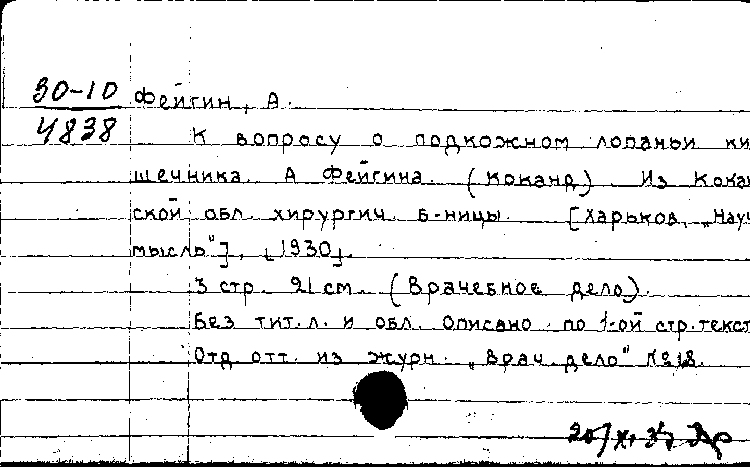 30-10
4838
Фейгин, А.
К вопросу о подкожном лопаньи ки
шечника А Фейгина. (Коканд) Из Кокан
ской обл. хирургич. б-ницы. [Харьков, „Науч
мысль"], [1930].
3 стр. 21 см. (Врачебное дело).
Без тит. л. и обл. Описано по 1-ой стр. текст
Отд отт. из журн. „Врач. дело" №18.
20/XI